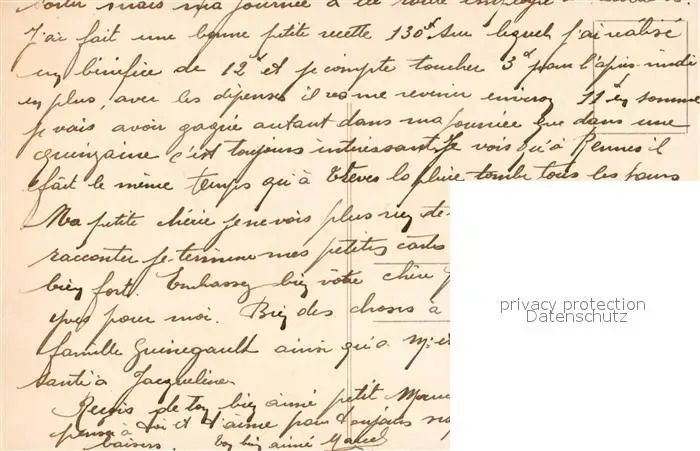 sortir mais ma journée a été
J'ai fait une bonne petite recette 130d sur lequel j'ai réalisé
un bénéfice de 12d et je compte toucher 3d pour l'après-midi
en plus, avec les dépenses il va me revenir environ 11d en somme
je vais avoir gagné autant dans ma journée que dans une
quinzaine c'est toujours intéressant. Je vois qu'à Rennes il
fait le même temps qu'à Trèves la pluie tombe tous les jours
Ma petite chérie je ne vois plus rien de
raconter je termine mes petites cartes
bien fort. Embrassez bien votre chère
Yves pour moi. Bien des choses à
famille Guinegault ainsi qu'à M. et
santé à Jacqueline.
Reçois de ton bien aimé petit
pense à toi et t'aime pour toujours
baisers. Ton bien aimé Marcel
privacy protection
Datenschutz